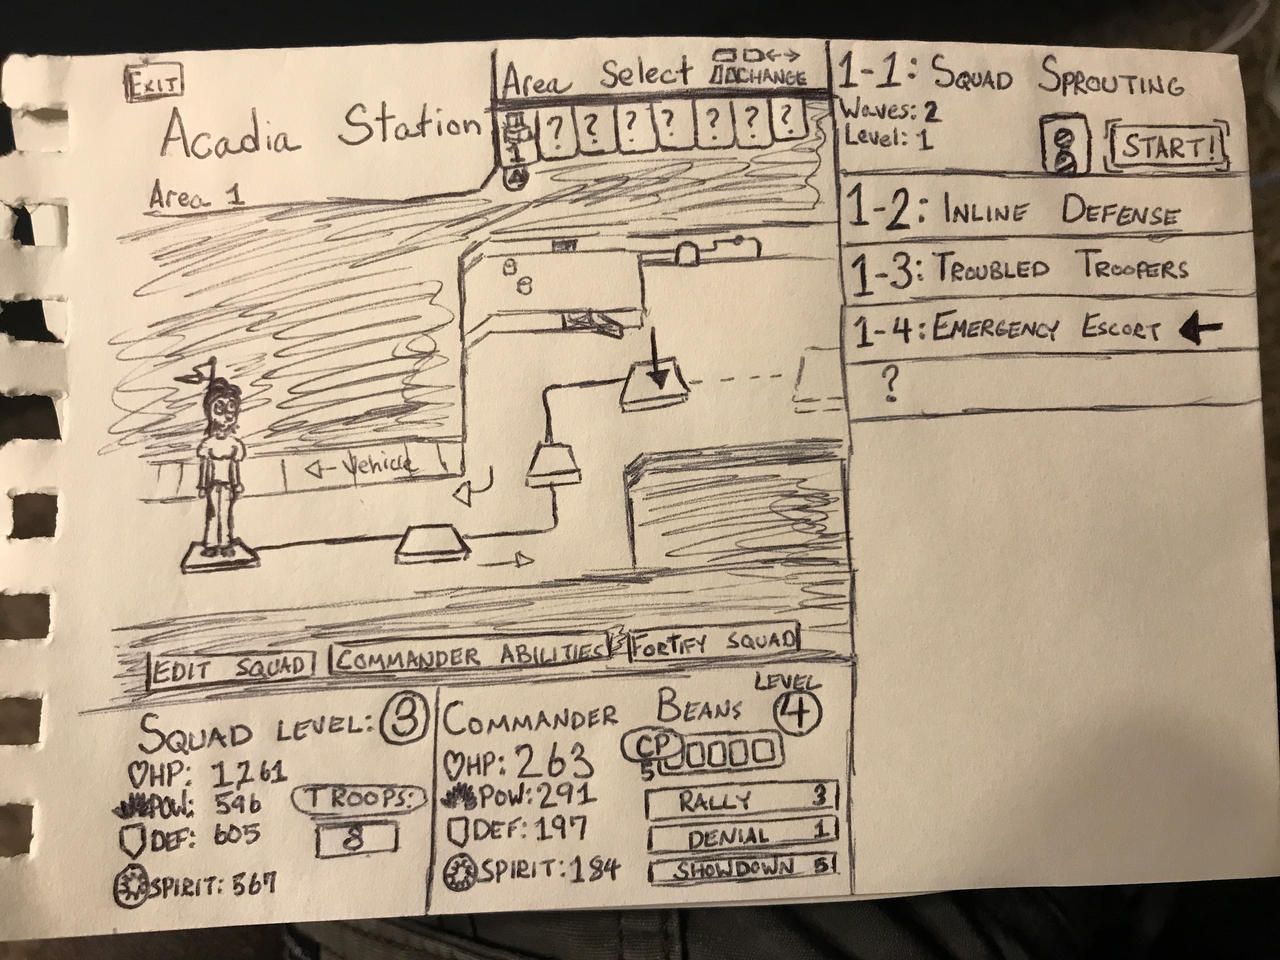 EXIT
Acadia Station
Area 1
Area Select
CHANGE
1 ? ? ? ? ? ? ?
A
1-1: SQUAD SPROUTING
Waves: 2
Level: 1
START!
1-2: INLINE DEFENSE
1-3: TROUBLED TROOPERS
1-4: EMERGENCY ESCORT
?
← Vehicle
EDIT SQUAD
COMMANDER ABILITIES
FORTIFY SQUAD
SQUAD LEVEL: 3
HP: 1261
POW: 596
DEF: 605
SPIRIT: 567
TROOPS:
8
COMMANDER BEANS LEVEL 4
HP: 263
POW: 291
DEF: 197
SPIRIT: 184
CP
5
RALLY 3
DENIAL 1
SHOWDOWN 5